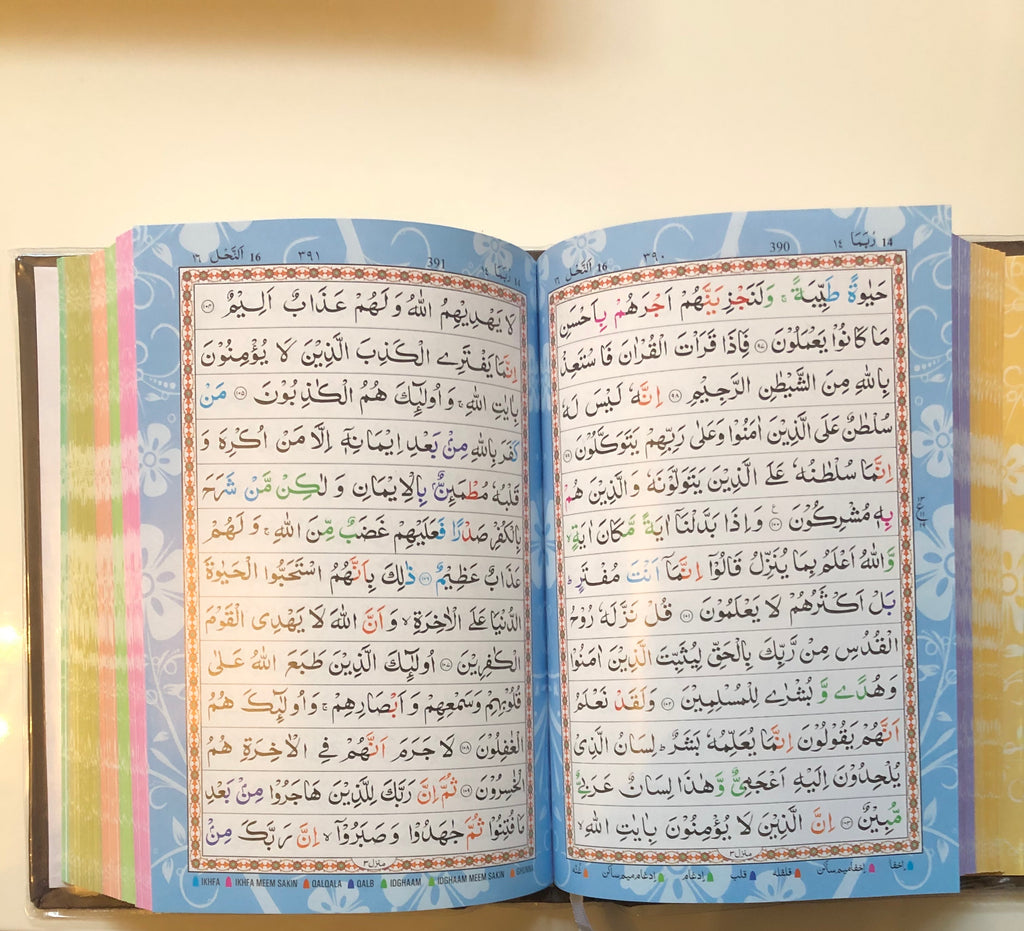 14 رُبَمَا ١٤
390
٣٩٠
16 اَلنَّحْل ١٦
حَيٰوةً طَيِّبَةً ۚ وَلَنَجْزِيَنَّهُمْ اَجْرَهُمْ بِاَحْسَنِ
مَا كَانُوْا يَعْمَلُوْنَ ﴿۹۷﴾ فَاِذَا قَرَاْتَ الْقُرْاٰنَ فَاسْتَعِذْ
بِاللّٰهِ مِنَ الشَّيْطٰنِ الرَّجِيْمِ ﴿۹۸﴾ اِنَّهٗ لَيْسَ لَهٗ
سُلْطٰنٌ عَلَى الَّذِيْنَ اٰمَنُوْا وَعَلٰى رَبِّهِمْ يَتَوَكَّلُوْنَ ﴿۹۹﴾
اِنَّمَا سُلْطٰنُهٗ عَلَى الَّذِيْنَ يَتَوَلَّوْنَهٗ وَالَّذِيْنَ هُمْ
بِهٖ مُشْرِكُوْنَ ﴿۱۰۰﴾ وَاِذَا بَدَّلْنَاۤ اٰيَةً مَّكَانَ اٰيَةٍ ۙ
وَّاللّٰهُ اَعْلَمُ بِمَا يُنَزِّلُ قَالُوْۤا اِنَّمَاۤ اَنْتَ مُفْتَرٍ ؕ
بَلْ اَكْثَرُهُمْ لَا يَعْلَمُوْنَ ﴿۱۰۱﴾ قُلْ نَزَّلَهٗ رُوْحُ
الْقُدُسِ مِنْ رَّبِّكَ بِالْحَقِّ لِيُثَبِّتَ الَّذِيْنَ اٰمَنُوْا
وَهُدًى وَّ بُشْرٰى لِلْمُسْلِمِيْنَ ﴿۱۰۲﴾ وَلَقَدْ نَعْلَمُ
اَنَّهُمْ يَقُوْلُوْنَ اِنَّمَا يُعَلِّمُهٗ بَشَرٌ ؕ لِسَانُ الَّذِيْ
يُلْحِدُوْنَ اِلَيْهِ اَعْجَمِيٌّ وَّ هٰذَا لِسَانٌ عَرَبِيٌّ
مُّبِيْنٌ ﴿۱۰۳﴾ اِنَّ الَّذِيْنَ لَا يُؤْمِنُوْنَ بِاٰيٰتِ اللّٰهِ ۙ
منزل ٣
اخفا اخفا میم ساکن قلقلہ قلب ادغام ادغام میم ساکن
رُبَمَا ١٤
391
٣٩١
16 اَلنَّحْل ١٦
لَا يَهْدِيْهِمُ اللّٰهُ وَ لَهُمْ عَذَابٌ اَلِيْمٌ ﴿۱۰۴﴾
اِنَّمَا يَفْتَرِى الْكَذِبَ الَّذِيْنَ لَا يُؤْمِنُوْنَ
بِاٰيٰتِ اللّٰهِ ۚ وَ اُولٰٓئِكَ هُمُ الْكٰذِبُوْنَ ﴿۱۰۵﴾ مَنْ
كَفَرَ بِاللّٰهِ مِنْۢ بَعْدِ اِيْمَانِهٖۤ اِلَّا مَنْ اُكْرِهَ وَ
قَلْبُهٗ مُطْمَئِنٌّۢ بِالْاِيْمَانِ وَ لٰكِنْ مَّنْ شَرَحَ
بِالْكُفْرِ صَدْرًا فَعَلَيْهِمْ غَضَبٌ مِّنَ اللّٰهِ ۚ وَ لَهُمْ
عَذَابٌ عَظِيْمٌ ﴿۱۰۶﴾ ذٰلِكَ بِاَنَّهُمُ اسْتَحَبُّوا الْحَيٰوةَ
الدُّنْيَا عَلَى الْاٰخِرَةِ ۙ وَ اَنَّ اللّٰهَ لَا يَهْدِى الْقَوْمَ
الْكٰفِرِيْنَ ﴿۱۰۷﴾ اُولٰٓئِكَ الَّذِيْنَ طَبَعَ اللّٰهُ عَلٰى
قُلُوْبِهِمْ وَ سَمْعِهِمْ وَ اَبْصَارِهِمْ ۚ وَ اُولٰٓئِكَ هُمُ
الْغٰفِلُوْنَ ﴿۱۰۸﴾ لَا جَرَمَ اَنَّهُمْ فِى الْاٰخِرَةِ هُمُ
الْخٰسِرُوْنَ ﴿۱۰۹﴾ ثُمَّ اِنَّ رَبَّكَ لِلَّذِيْنَ هَاجَرُوْا مِنْۢ بَعْدِ
مَا فُتِنُوْا ثُمَّ جٰهَدُوْا وَ صَبَرُوْۤا ۙ اِنَّ رَبَّكَ مِنْۢ
منزل ٣
IKHFA IKHFA MEEM SAKIN QALQALA QALB IDGHAAM IDGHAAM MEEM SAKIN GHUNNA